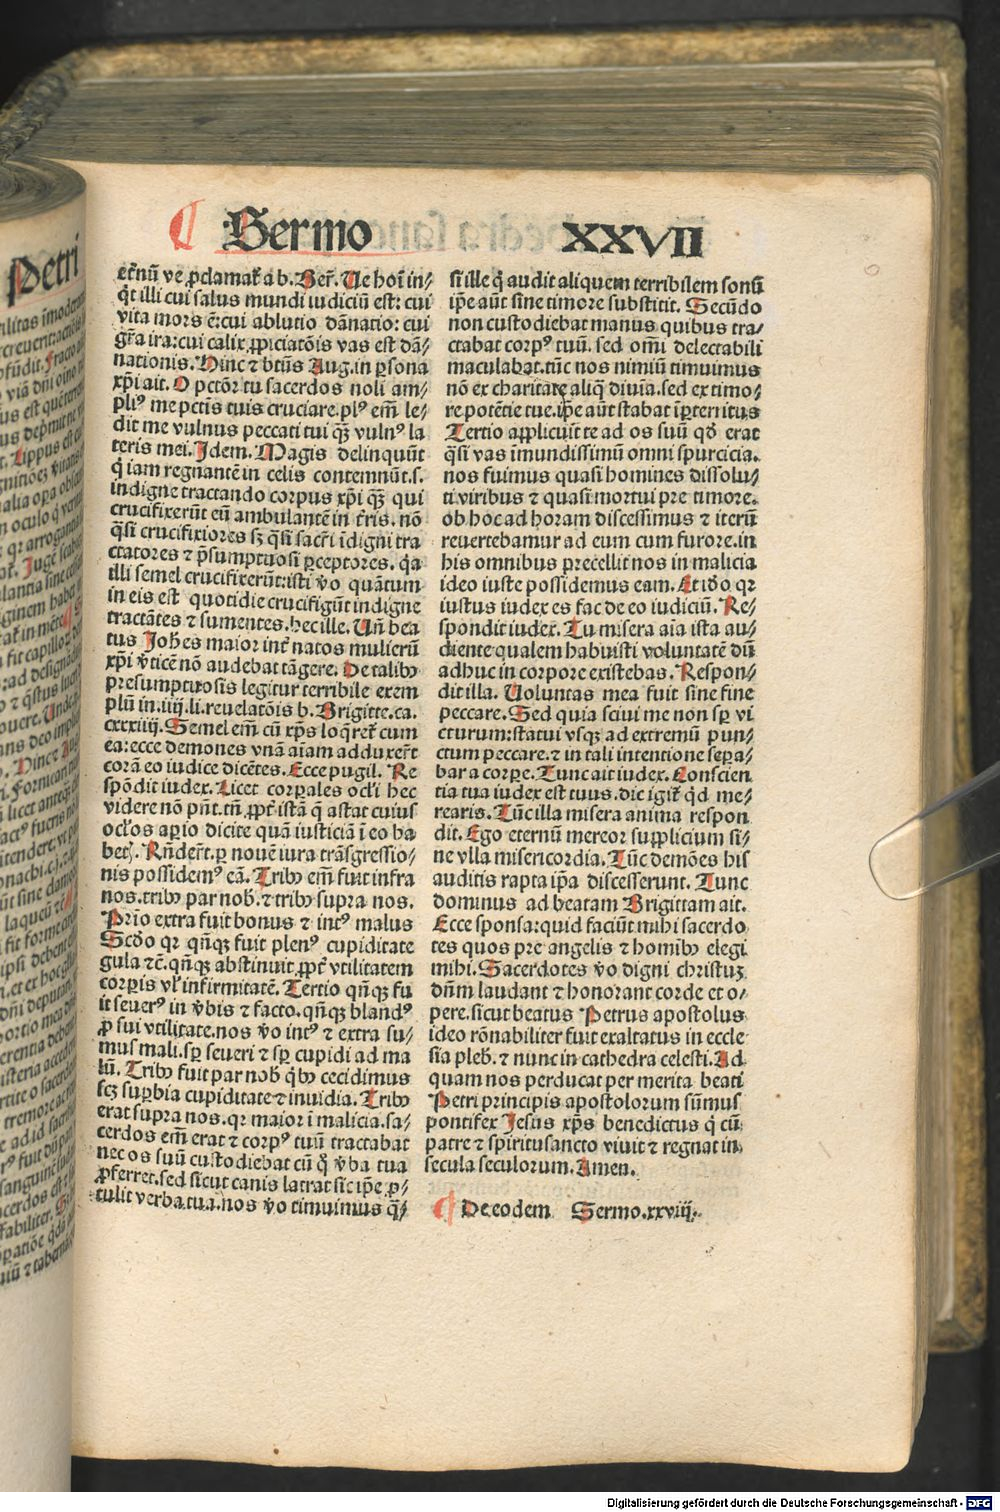 Petri
Sermo XXVII
et̃nũ ve ꝓclamat̃ a b. Ber̃. Ue hoĩ in⸗
q̃t illi cui salus mundi iudiciũ est: cui
vita mors ẽ: cui ablutio dãnatio: cui
gr̃a ira: cui calix ꝓpiciatõis vas est dã⸗
nationis. Hinc ⁊ btũs Aug. in ꝑsona
xp̃i ait. O pctõr tu sacerdos noli am⸗
pliꝰ me pctĩs tuis cruciare. plꝰ em̃ le⸗
dit me vulnus peccati tui qꝫ vulnꝰ la
teris mei. Idem. Magis delinquũt
q̃ iam regnantẽ in celis contemnũt .s.
indigne tractando corpus xp̃i qꝫ qui
crucifixerũt eũ ambulantẽ in t̃ris. nõ
q̃si crucifixiores sꝫ q̃si sacr̃i ĩdigni tra
ctatores ⁊ p̃sumptuosi ꝑceptores. q̃a
illi semel crucifixerũt: isti ṽo quãtum
in eis est quotidie crucifigũt indigne
tractãtes ⁊ sumentes. hec ille. Uñ bea
tus Joh̃es maior int̃ natos mulierũ
xp̃i ṽticẽ nõ audebat tãgere. De talibꝰ
presumptuosis legitur terribile exem
plũ in .iiij. li. reuelatõis b. Brigitte. ca.
cxxxiiij. Semel em̃ cũ xp̃s loq̃ret̃ cum
ea: ecce demones vnã aĩam adduxer̃t
corã eo iudice dicẽtes. Ecce pugil. Re
spõdit iudex. Licet corꝑales ocl̃i hec
videre nõ pñt. tñ ꝓpt̃ istã q̃ astat cuius
ocl̃os aꝑio dicite quã iusticiã ĩ eo ha
betꝭ. Rñder̃t. ꝑ nouẽ iura trãsgressio⸗
nis possidemꝰ eã. Tribꝰ em̃ fuit infra
nos. tribꝰ par nob̃. ⁊ tribꝰ supra nos.
Prio extra fuit bonus ⁊ intꝰ malus
Scdo qr qñqꝫ fuit plenꝰ cupiditate
gula ⁊c̃. qñqꝫ abstinuit ꝓpt̃ vtilitatem
corꝑis vl̃ infirmitatẽ. Tertio qñqꝫ fu
it seuerꝰ in ṽbis ⁊ facto. qñqꝫ blandꝰ
ꝓ sui vtilitate. nos ṽo intꝰ ⁊ extra su⸗
mus mali. sp̃ seueri ⁊ sp̃ cupidi ad ma
lũ. Tribꝰ fuit par nob̃ qͥbꝰ cecidimus
scꝫ suꝑbia cupiditate ⁊ inuidia. Tribꝰ
erat supra nos. qr maior ĩ malicia. sa⸗
cerdos em̃ erat ⁊ corpꝰ tuũ tractabat
nec os suũ custodiebat cũ q̃ ṽba tua
ꝓferret. sed sicut canis latrat sic ip̃e ꝓ⸗
tulit verba tua. nos ṽo timuimus q̃⸗
si ille q̃ audit aliquem terribilem sonũ
ip̃e aũt sine timore substitit. Secũdo
non custodiebat manus quibus tra⸗
ctabat corpꝰ tuũ. sed om̃i delectabili
maculabat. tũc nos nimiũ timuimus
nõ ex charitate aliq̃ diuĩa. sed ex timo⸗
re potẽtie tue. ip̃e aũt stabat ĩꝑterritus
Tertio applicuit te ad os suũ qd̃ erat
q̃si vas ĩmundissimũ omni spurcicia.
nos fuimus quasi homines dissolu⸗
ti viribus ⁊ quasi mortui pre timore.
ob hoc ad horam discessimus ⁊ iterũ
reuertebamur ad eum cum furore. in
his omnibus precellit nos in malicia
ideo iuste possidemus eam. Et iдo qr
iustus iudex es fac de eo iudiciũ. Re⸗
spondit iudex. Tu misera aĩa ista au⸗
diente qualem habuisti voluntatẽ dũ
adhuc in corpore existebas. Respon⸗
dit illa. Uoluntas mea fuit sine fine
peccare. Sed quia sciui me non sp̃ vi
cturum: statui vsqꝫ ad extremũ pun⸗
ctum peccare. ⁊ in tali intentione sepa⸗
bar a corꝑe. Tunc ait iudex. Conscien
tia tua iudex est tuus. dic igit̃ qd̃ me⸗
rearis. Tũc illa misera anima respon
dit. Ego eternũ mereor supplicium si⸗
ne vlla misericordia. Tũc demões his
auditis rapta ip̃a discesserunt. Tunc
dominus ad beatam Brigittam ait.
Ecce sponsa: quid faciũt mihi sacerdo
tes quos pre angelis ⁊ homibꝰ elegi
mihi. Sacerdotes ṽo digni christuꝫ
dñm laudant ⁊ honorant corde et o⸗
pere. sicut beatus Petrus apostolus
ideo rõnabiliter fuit exaltatus in eccle
sia pleb̃. ⁊ nunc in cathedra celesti. Ad
quam nos perducat per merita beati
Petri principis apostolorum sũmus
pontifex Jesus xp̃s benedictus q̃ cũ
patre ⁊ spiritusancto viuit ⁊ regnat in
secula seculorum. Amen.
De eodem Sermo. xxviij.
Digitalisierung gefördert durch die Deutsche Forschungsgemeinschaft - DFG